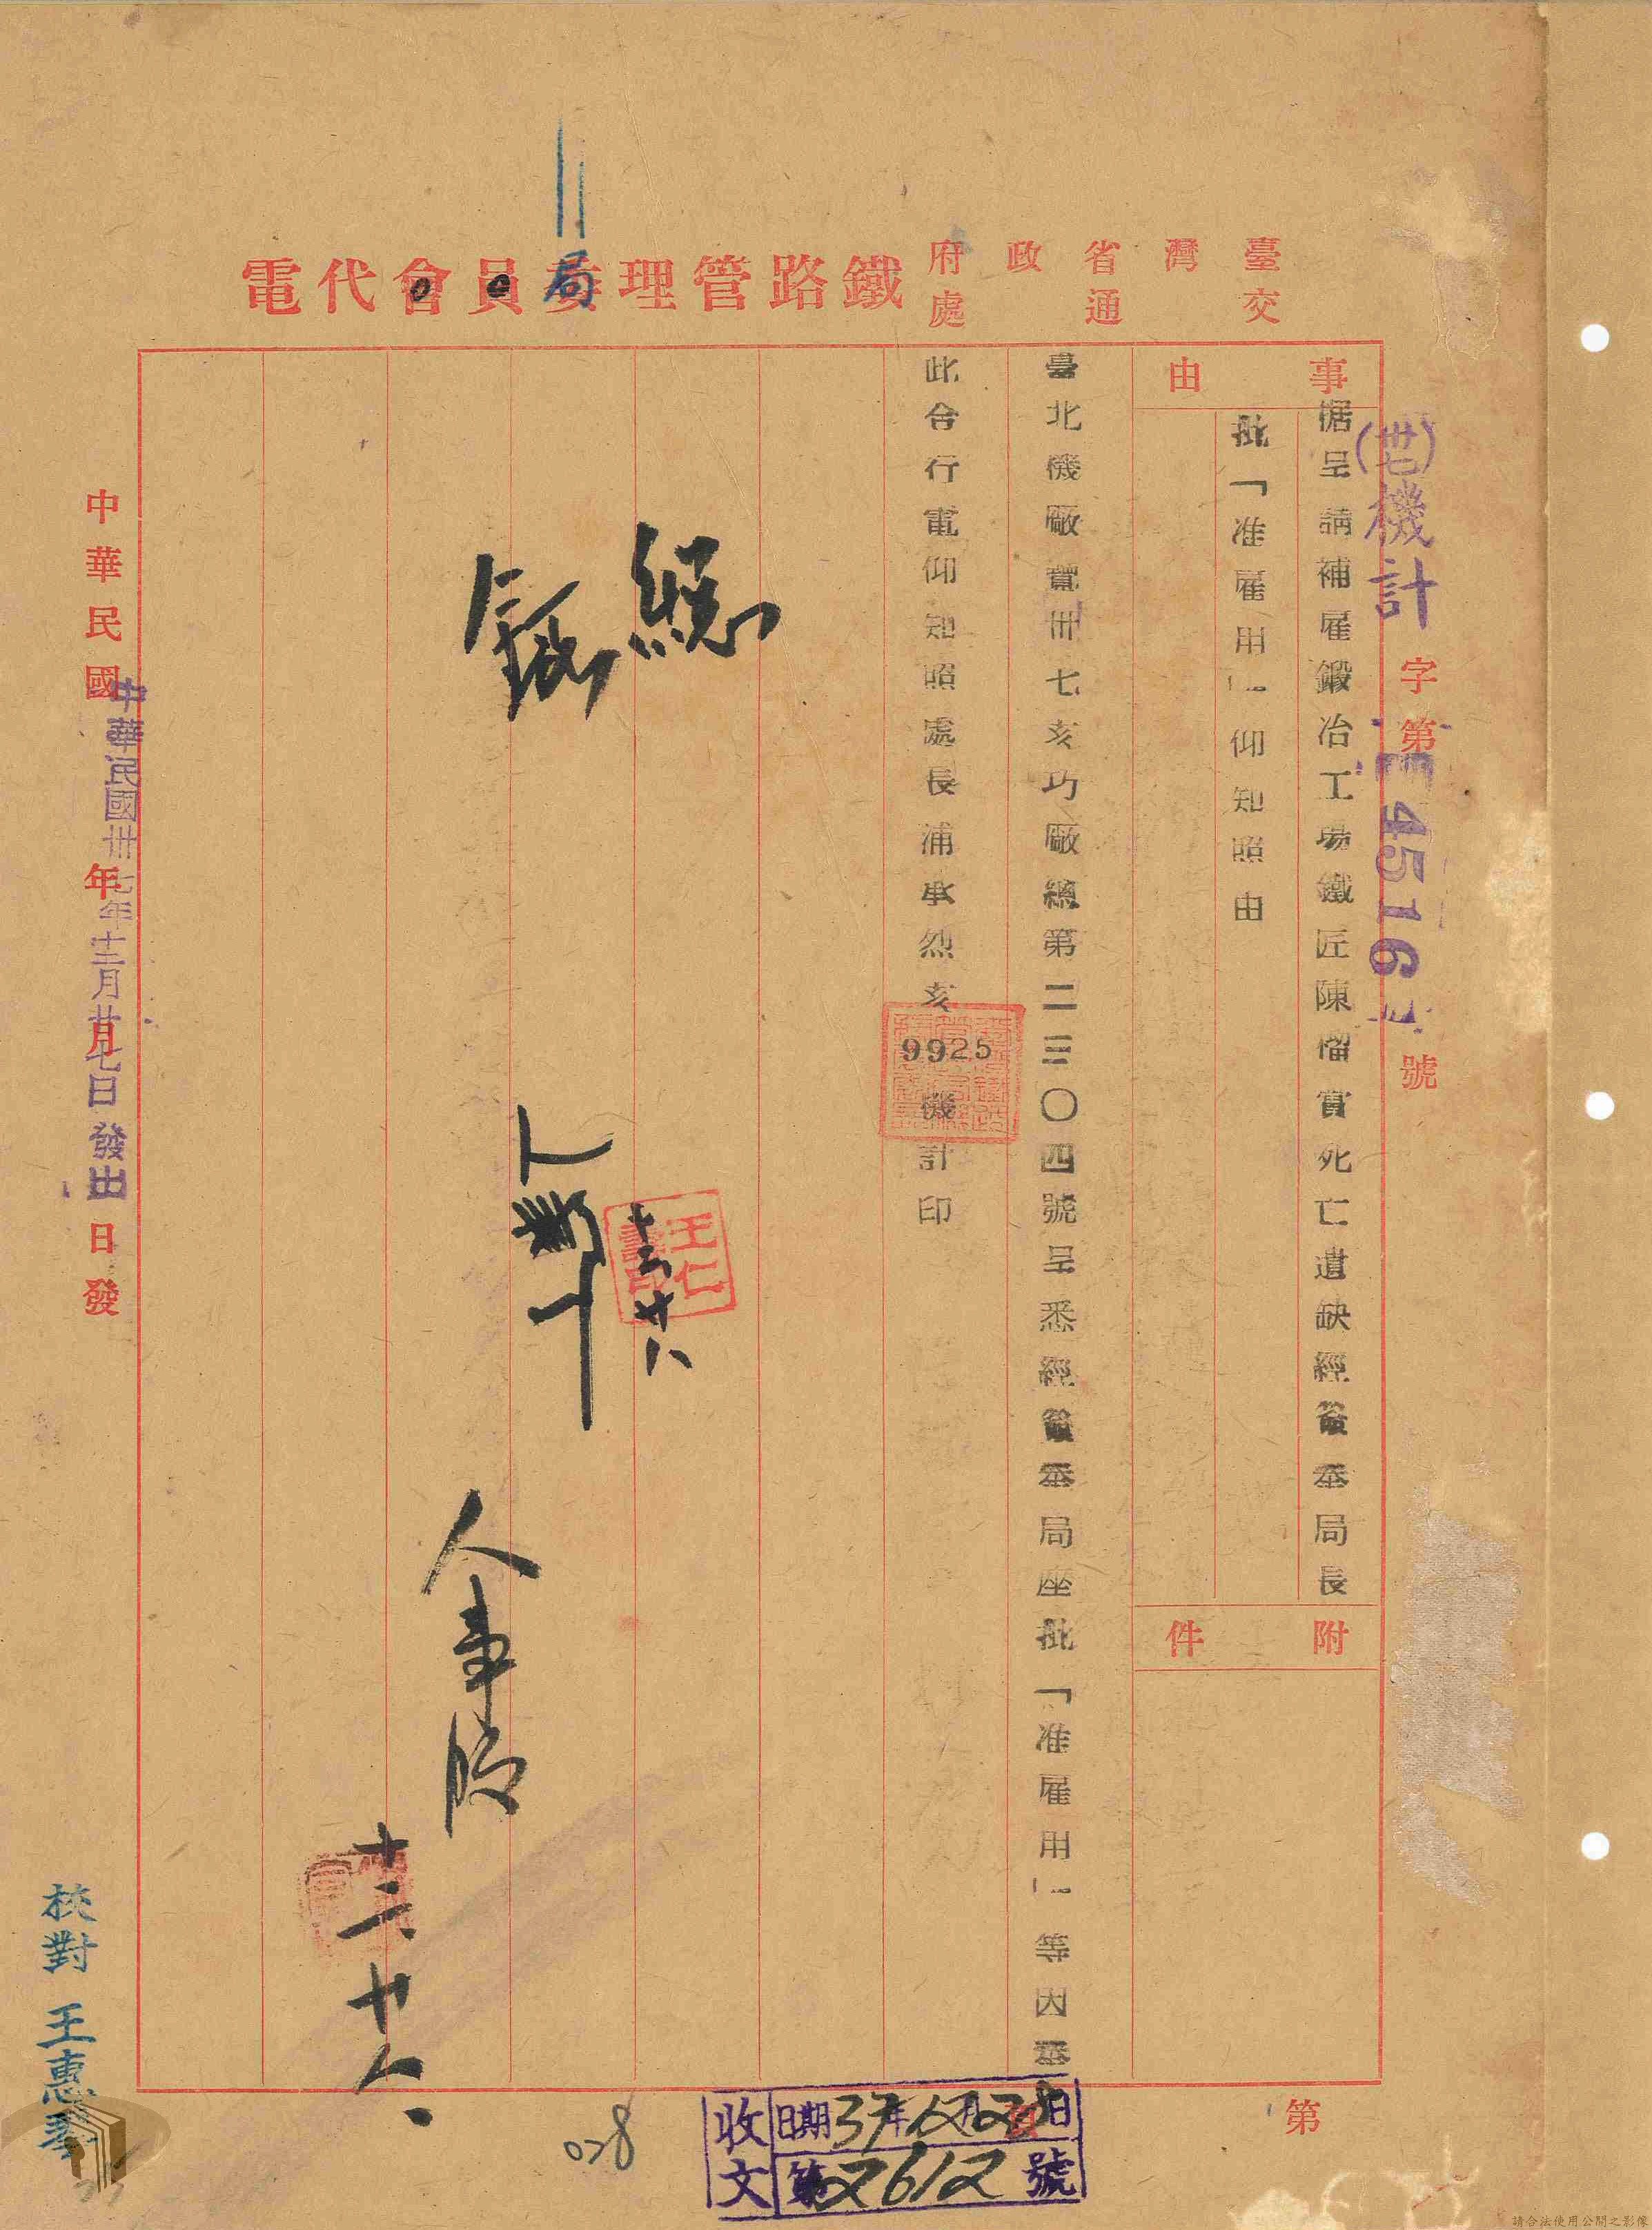 臺灣省政府
交通處
鐵路管理局代電
(卅七)機計字第45161號
事由
据呈請補雇鍛冶工場鐵匠陳榴賞死亡遺缺經簽奉局長
批「准雇用」仰知照由
附件
臺北機廠覽卅七亥巧廠總第二三〇四號呈悉經簽奉局座批「准雇用」等因奉
此合行電仰知照處長浦承烈亥
9925
機計印
總
王仁
十二廿八
人事股
十二廿八
中華民國年月日發
中華民國卅七年十二月廿七日發出
校對 王惠
第
收文
日期37年12月28日
第2612號
028
請合法使用公開之影像